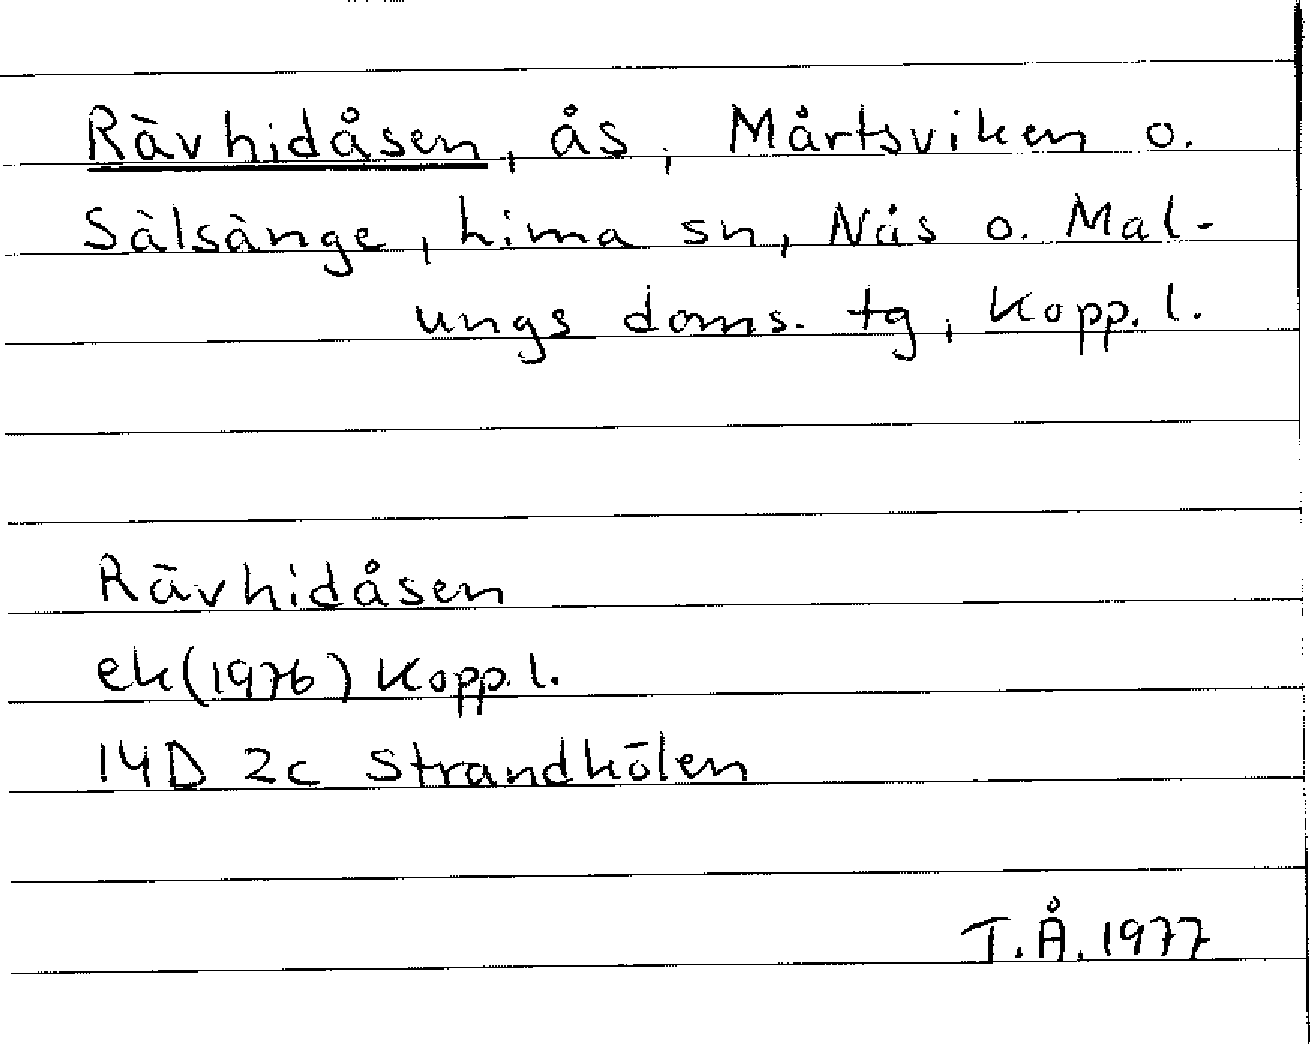 Rävhidåsen, ås, Mårtsviken o.
Sälsänge, Lima sn, Nås o. Mal-
ungs doms. tg, Kopp. l.
Rävhidåsen
ek(1976) Kopp. l.
14D 2c Strandkölen
T.Å. 1977